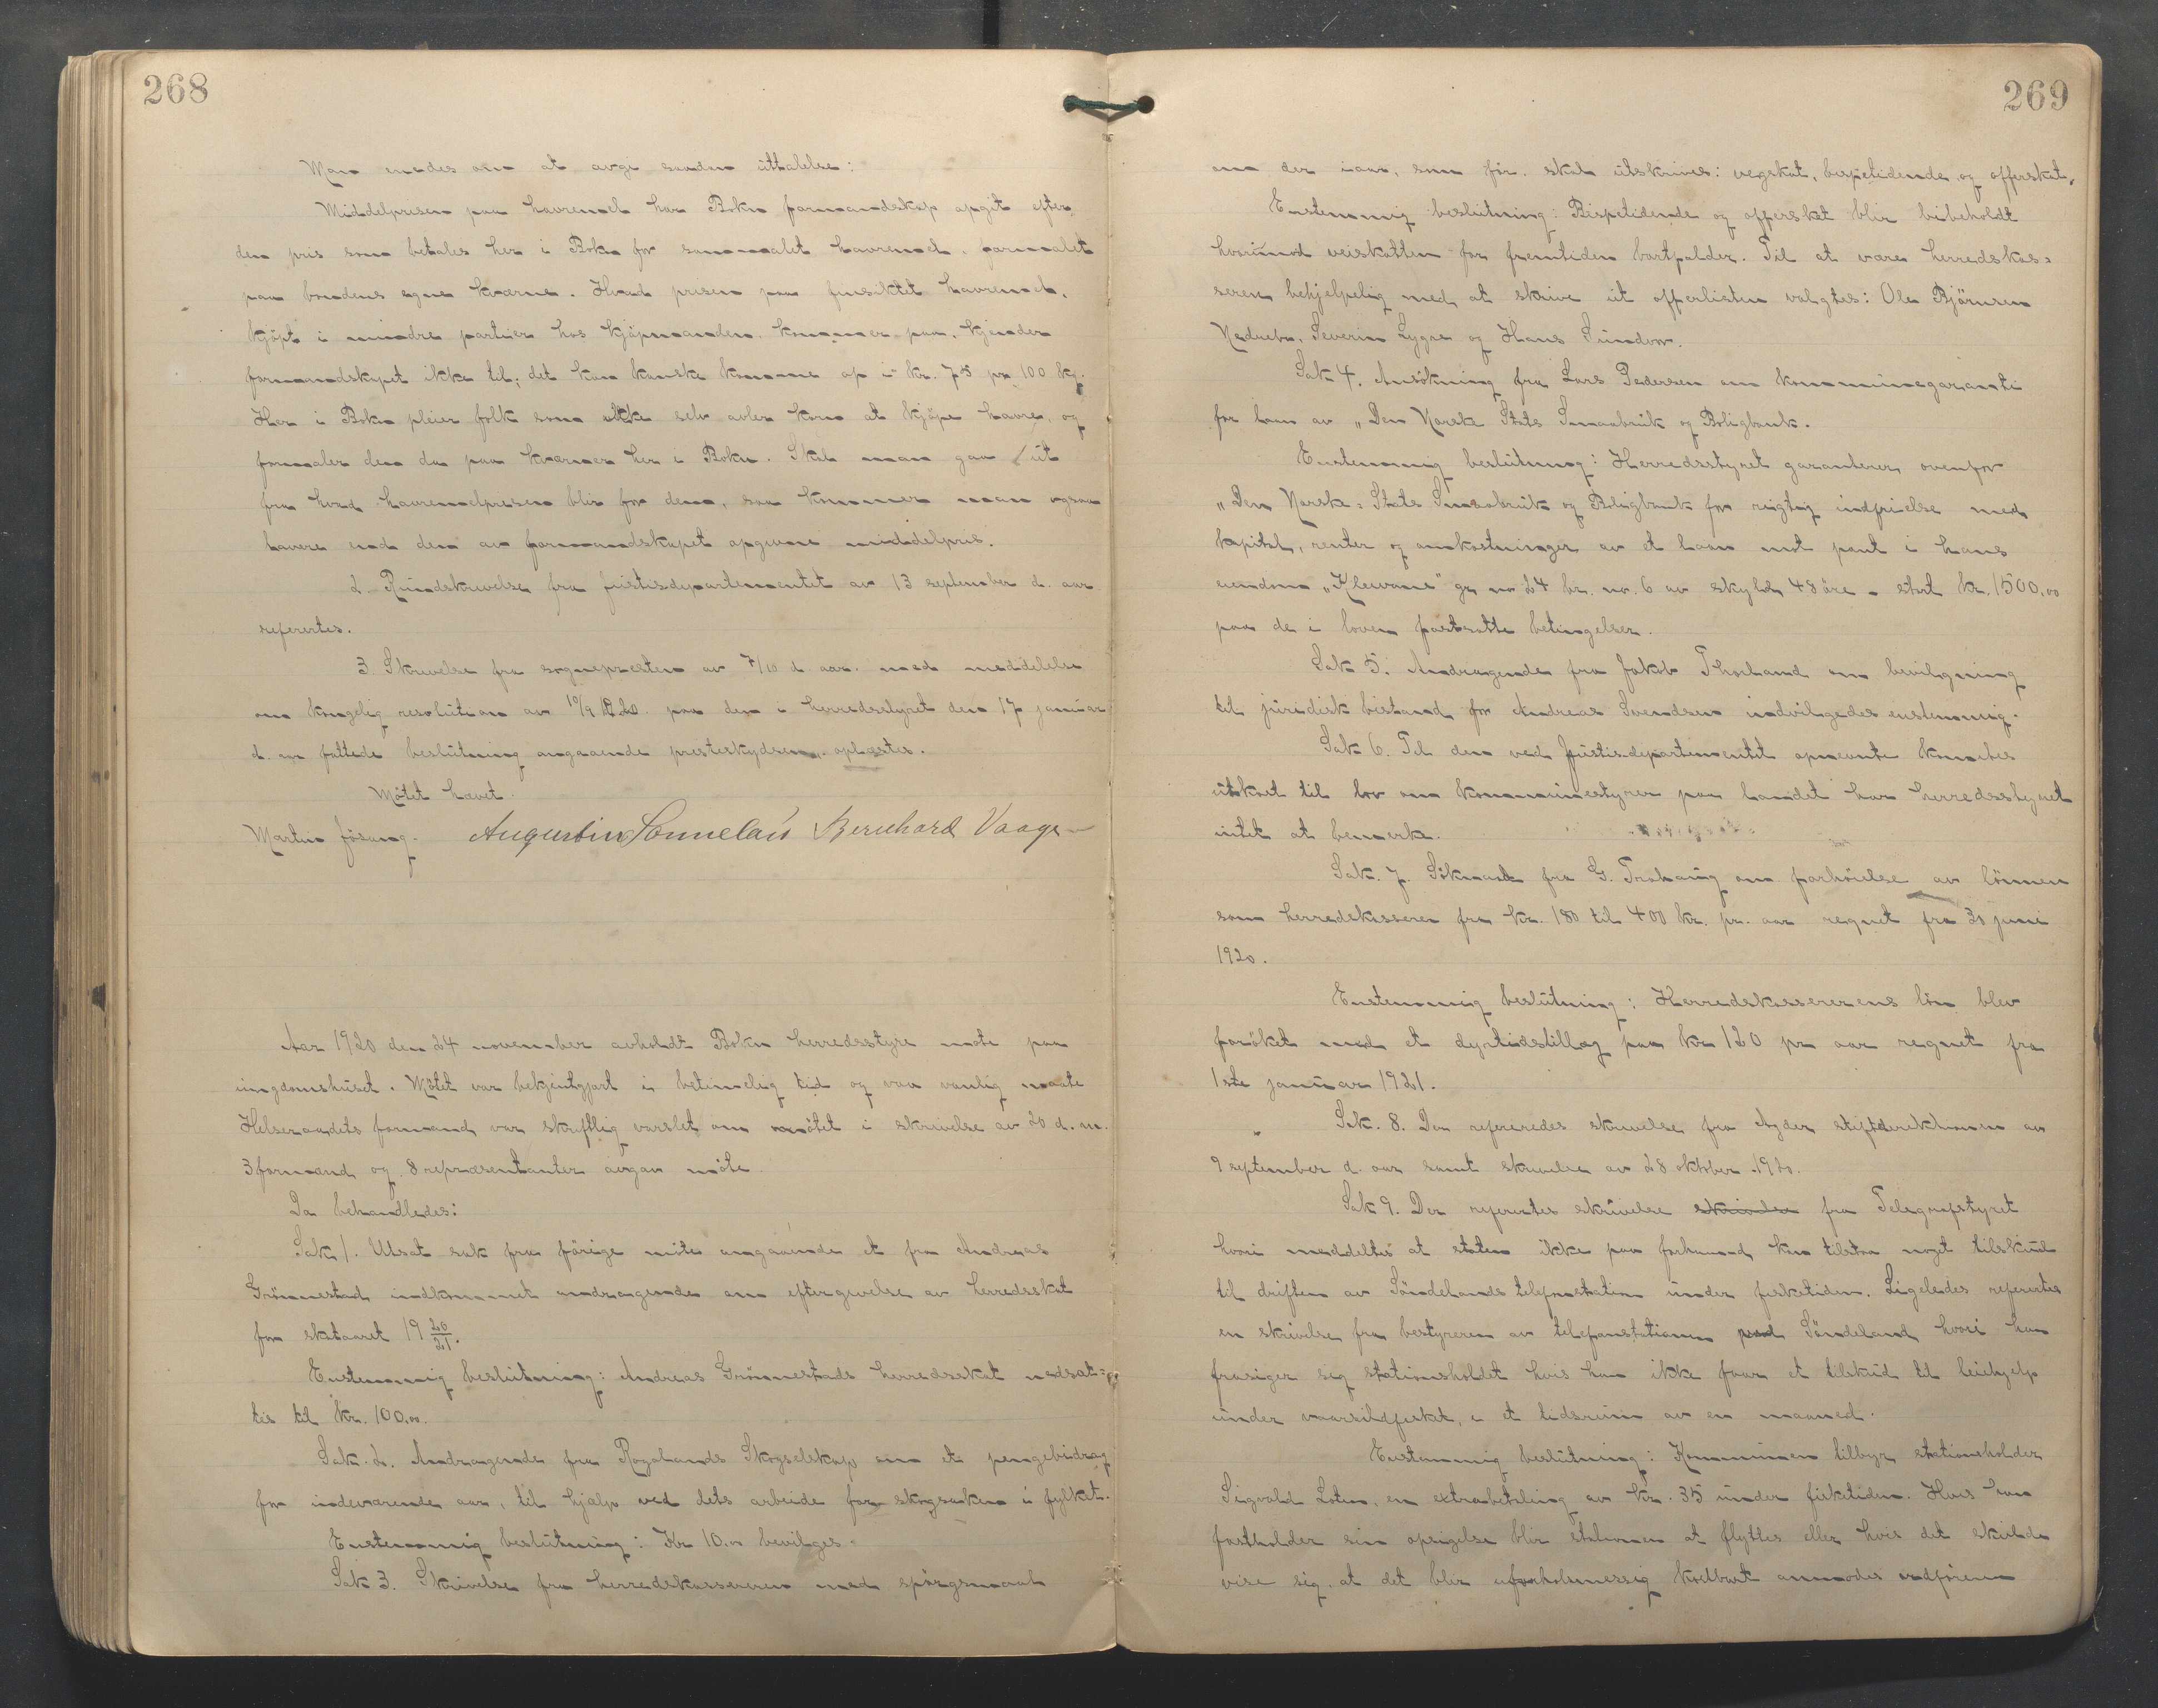 268
Man enedes om at avgi saadan uttalelse:
Middelprisen paa havremel har Bokn formandskap opgit efter
den pris som betales her i Bokn for sammalet havremel, formalet
paa bondens egne kverne. Hvad prisen paa finsiktet havremel,
kjøpt i mindre partier hos kjøpmanden, kommer paa, kjender
formandskapet ikke til; det kan kanske komme op i kr. 75 pr 100 kg.
Her i Bokn pleier folk som ikke selv avler korn at kjøpe havre, og
formaler den da paa kverner her i Bokn. Skal man gaa ut
fra hvad havremelprisen blir for dem, saa kommer man ogsaa
lavere end den av formandskapet opgivne middelpris.
2. Rundskrivelse fra justisdepartementet av 13 september d. aar
refereertes.
3. Skrivelse fra sognepresten av 7/10 d. aar. med meddelelse
om kongelig resolution av 10/9 1920. paa den i herredsstyret den 17 januar
d. aar fattede beslutning angaaende presteskydsen, oplæstes.
Møtet hævet.
Martin Jøsang. Augustin Sunnelaid Bernhard Vaage
Aar 1920 den 24 november avholdt Bokn herredsstyre møte paa
ungdomshuset. Møtet var bekjentgjort i betimelig tid og paa vanlig maate
Helseraadets formand var skriftlig varslet om møtet i skrivelse av 20 d. m.
3 formænd og 8 repræsentanter avgav møte
Da behandledes:
Sak 1. Utsat sak fra forrige møte angaaende et fra Andreas
Grønnestad indkommet andragende om eftergivelse av herredsskat
for skataaret 19 20/21.
Enstemmig beslutning: Andreas Grønnestads herredsskat nedsat-
tes til kr. 100,00.
Sak. 2. Andragende fra Rogalands Skogselskap om et pengebidrag
for indeværende aar, til hjælp ved dets arbeide for skogsaken i fylket.
Enstemmig beslutning: Kr 10.00 bevilges.
Sak 3. Skrivelse fra herredskassereren med spørgsmaal
269
om der iaar, som før, skal utskrives: vegskat, bispetidende og offerskat.
Enstemmig beslutning: Bispetidende og offerskat blir bibeholdt
hvorimot veiskatten for fremtiden bortfalder. Til at være herredskas-
seren behjelpelig med at skrive ut offerlisten valgtes: Ole Bjørnsen
Nedrebø, Severin Lygre og Hans Sundvor.
Sak 4. Ansøkning fra Lars Pedersen om kommunegaranti
for laan av „Den Norske Stats Smaabruk og Boligbank.
Enstemmig beslutning: Herredsstyret garanterer ovenfor
„Den Norske Stats Smaabruk og Boligbank for rigtig indfrielse med
kapital, renter og omkostninger av et laan mot pant i hans
eiendom „Kleivane" gr. no 24 br. no. 6 av skyld 48 øre - stort kr. 1500,00
paa de i loven fastsatte betingelser.
Sak 5. Andragende fra Jakob Thorland om bevilgning
til juridisk bistand for Andreas Svendsen indvilgedes enstemmig.
Sak 6. Til den ved Justisdepartementet opnevnte komites
utkast til lov om kommunestyrer paa landet har herredsstyret
intet at bemerke.
Sak. 7. Søknad fra G. Trohaug om forhøielse av lønnen
som herredskasserer fra kr. 180 til 400 kr. pr. aar regnet fra 30 juni
1920.
Enstemmig beslutning: Herredskassererens løn blev
forøket med et dyrtidstillæg paa kr 120 pr aar regnet fra
1ste januar 1921.
Sak. 8. Da refereredes skrivelse fra Agder stiftdirektion av
9 september d. aar samt skrivelse av 28 oktober 1920.
Sak 9. Der refereertes skrivelse skrivelse fra Telegrafstyret
hvori meddeltes at staten ikke paa forhaand kan tilstaa noget tilskud
til driften av Søndelands telefonstation under fisketiden. Ligeledes refereertes
en skrivelse fra bestyreren av telefonstationen paa Søndeland hvori han
frasiger sig stationsholdet hvis han ikke faar et tilskud til leiehjelp
under vaarsildfisket, i et tidsrum av en maaned.
Enstemmig beslutning: Kommunen tilbyr stationsholder
Sigvald Loten, en extrabetaling av kr. 35 under fisketiden. Hvis han
fastholder sin opsigelse blir stationen at flyttes eller hvis det skulde
vise sig at det blir uforholsmessig kostbart anmodes ordføreren